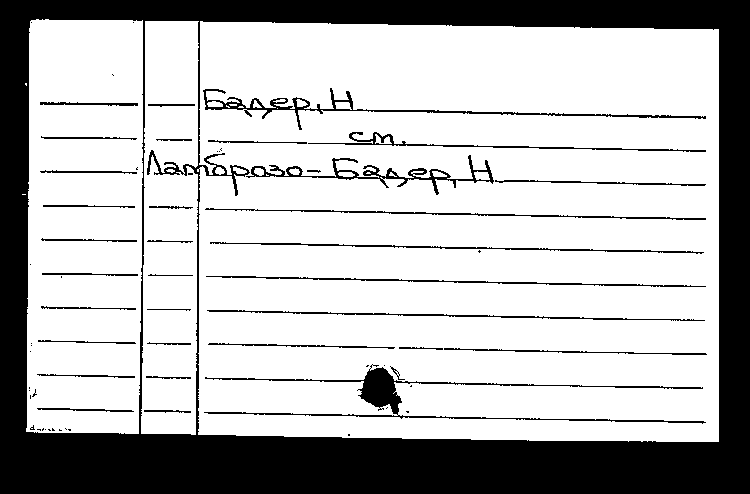 Бадер, Н
см.
Ламброзо-Бадер, Н